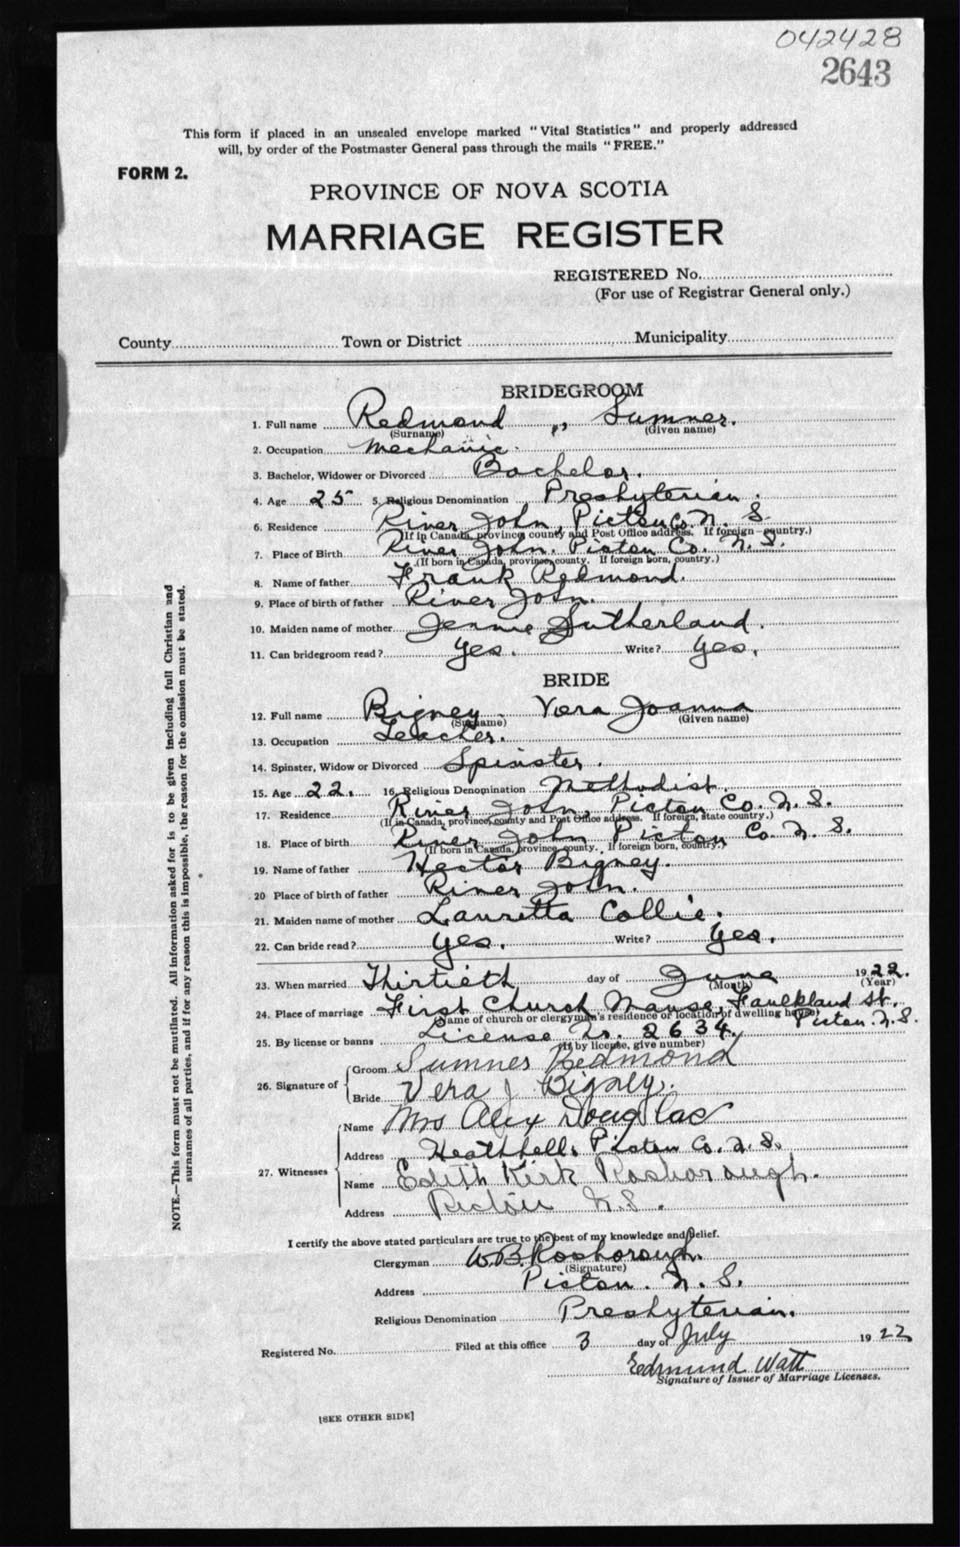 042428
2643
This form if placed in an unsealed envelope marked "Vital Statistics" and properly addressed
will, by order of the Postmaster General pass through the mails "FREE."
FORM 2.
PROVINCE OF NOVA SCOTIA
MARRIAGE REGISTER
REGISTERED No.
(For use of Registrar General only.)
County Town or District Municipality
BRIDEGROOM
1. Full name Redmond ,, Sumner.
(Surname) (Given name)
2. Occupation Mechanic.
3. Bachelor, Widower or Divorced Bachelor.
4. Age 25 5. Religious Denomination Presbyterian.
6. Residence River John, Pictou Co. N. S
(If in Canada, province county and Post Office address. If foreign country.)
7. Place of Birth River John. Pictou Co. N. S.
(If born in Canada, province, county. If foreign born, country.)
8. Name of father Frank Redmond.
9. Place of birth of father River John.
10. Maiden name of mother Jennie Sutherland.
11. Can bridegroom read? Yes. Write? Yes.
BRIDE
12. Full name Bigney Vera Joanna
(Surname) (Given name)
13. Occupation Teacher.
14. Spinster, Widow or Divorced Spinster.
15. Age 22. 16. Religious Denomination Methodist.
17. Residence River John, Pictou Co. N. S.
(If in Canada, province, county and Post Office address. If foreign, state country.)
18. Place of birth River John Pictou Co. N. S.
(If born in Canada, province, county. If foreign born, country.)
19. Name of father Hector Bigney.
20 Place of birth of father River John.
21. Maiden name of mother Lauretta Collie.
22. Can bride read? Yes. Write? Yes.
23. When married Thirtieth day of June 1922.
(Month) (Year)
24. Place of marriage First Church Manse, Faulkland St.
(Name of church or clergyman's residence or location of dwelling house) Pictou N. S.
25. By license or banns License No. 2634.
(If by license, give number)
26. Signature of Groom Sumner Redmond
Bride Vera J Bigney.
27. Witnesses Name Mrs Alex Douglas
Address Heathbell, Pictou Co. N. S.
Name Edith Kirk Rosborough.
Address Pictou N.S.
I certify the above stated particulars are true to the best of my knowledge and belief.
Clergyman W.B. Rosborough.
(Signature)
Address Pictou. N. S.
Religious Denomination Presbyterian.
Registered No. Filed at this office 3 day of July 1922
Edmund Watt
Signature of Issuer of Marriage Licenses.
[SEE OTHER SIDE]
NOTE.—This form must not be mutilated. All information asked for is to be given including full Christian and
surnames of all parties, and if for any reason this is impossible, the reason for the omission must be stated.